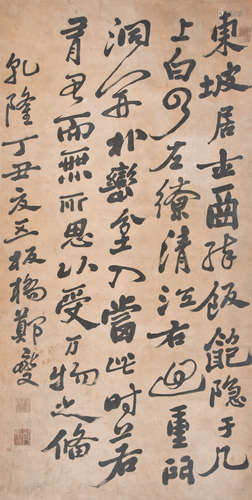 東坡居士酉醉飯飽隐于几
上白雲左繚清江右洄重門
洞开林巒坌入當此时若
有思而無所思以受万物之備
乾隆丁丑夏五板橋鄭燮